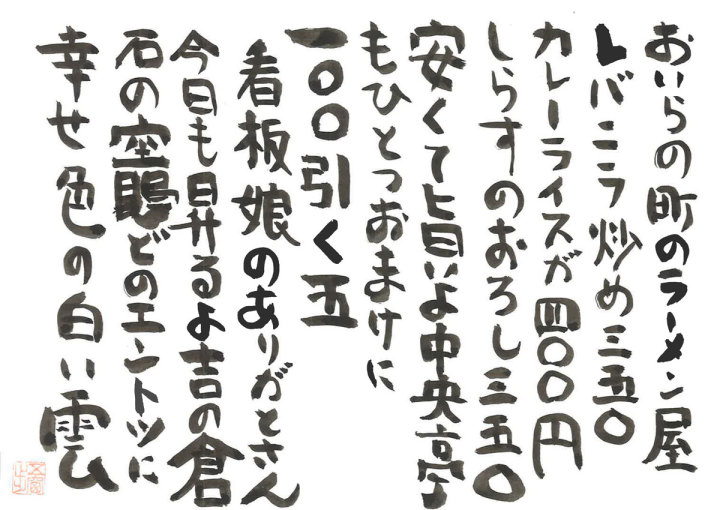 おいらの町のラーメン屋
レバニラ炒め三五〇
カレーライスが四〇〇円
しらすのおろし三五〇
安くて旨いよ中央亭
もひとつおまけに
一〇〇引く五
看板娘のありがとさん
今日も昇るよ吉の倉
石の空鵙どのエントツに
幸せ色の白い雲